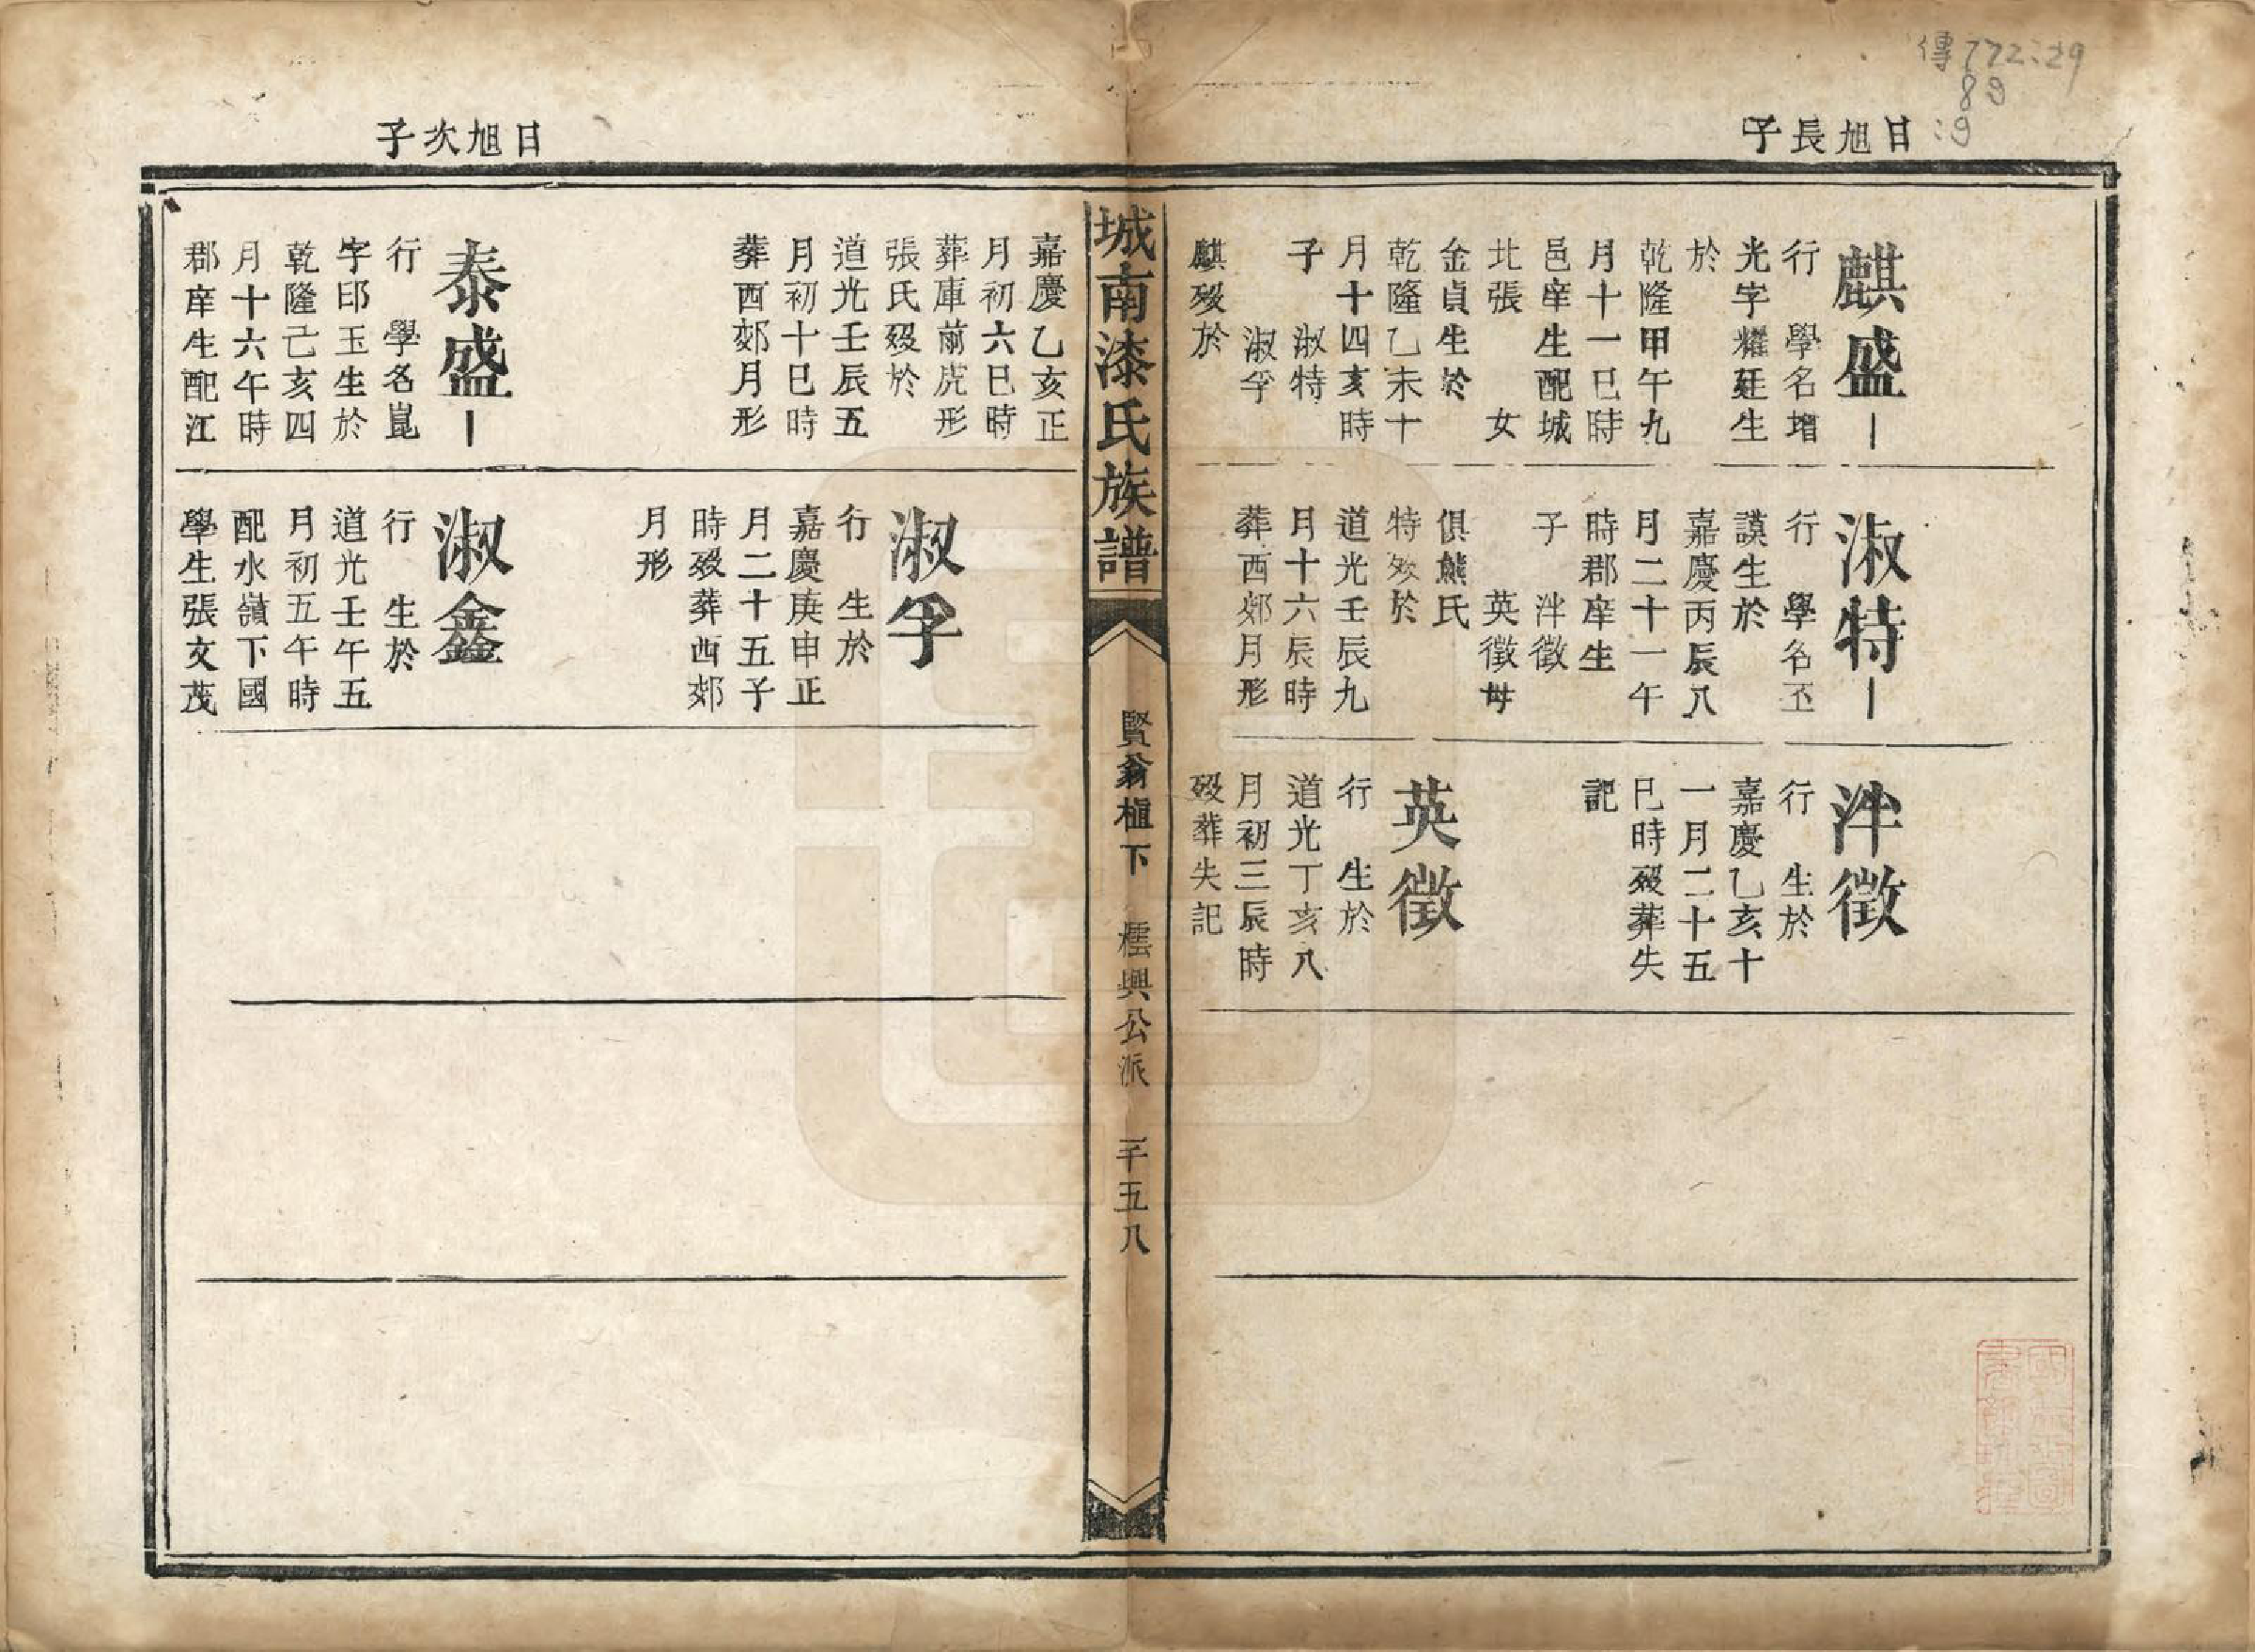 傳772:29
89
:9
日旭長子
麒盛
行　學名增
光字耀廷生
於
乾隆甲午九
月十一巳時
邑庠生配城
北張　　女
金貞生於
乾隆乙未十
月十四亥時
子　淑特
淑孚
麒歿於
淑特
行　學名丕
謨生於
嘉慶丙辰八
月二十一午
時郡庠生
子　泮徵
英徵母
俱熊氏
特歿於
道光壬辰九
月十六辰時
葬西郊月形
泮徵
行　生於
嘉慶乙亥十
一月二十五
巳時歿葬失
記
英徵
行　生於
道光丁亥八
月初三辰時
歿葬失記
城南漆氏族譜
賢翁植下
櫺興公派
三千五八
日旭次子
嘉慶乙亥正
月初六巳時
葬庫前虎形
張氏歿於
道光壬辰五
月初十巳時
葬西郊月形
淑孚
行　生於
嘉慶庚申正
月二十五子
時歿葬西郊
月形
泰盛
行　學名崑
字印玉生於
乾隆己亥四
月十六午時
郡庠生配江
淑鑫
行　生於
道光壬午五
月初五午時
配水嶺下國
學生張文茂